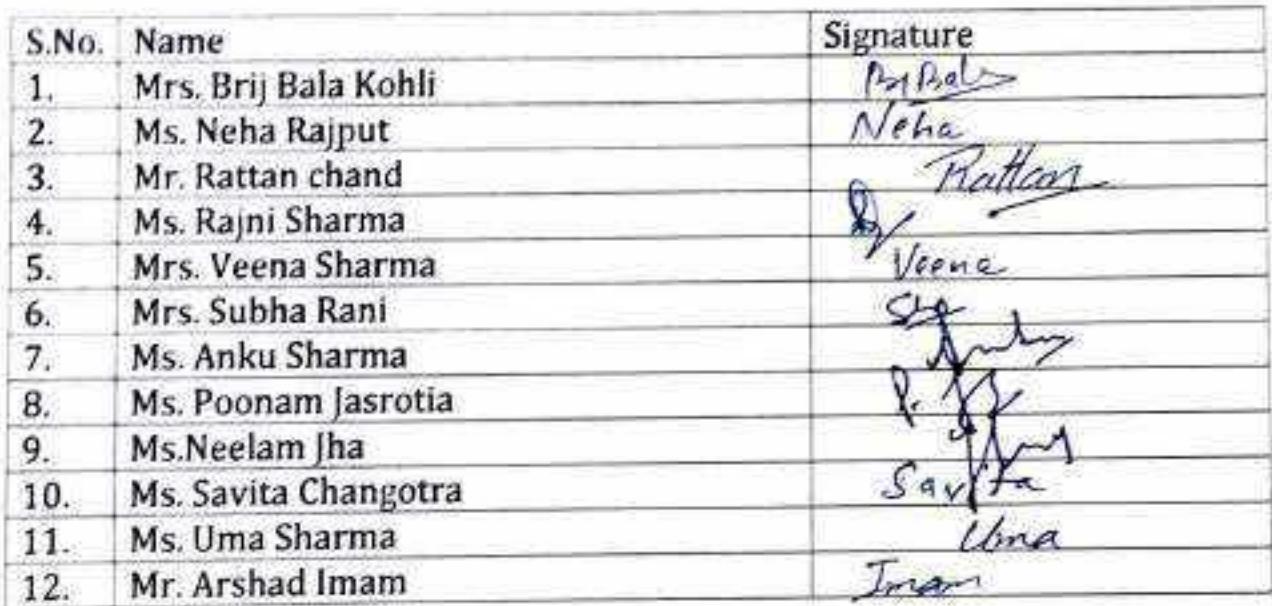 S.No. Name Signature
1. Mrs. Brij Bala Kohli
2. Ms. Neha Rajput Neha
3. Mr. Rattan chand Rattan
4. Ms. Rajni Sharma
5. Mrs. Veena Sharma Veena
6. Mrs. Subha Rani
7. Ms. Anku Sharma
8. Ms. Poonam Jasrotia
9. Ms.Neelam Jha
10. Ms. Savita Changotra Savita
11. Ms. Uma Sharma Uma
12. Mr. Arshad Imam Imam